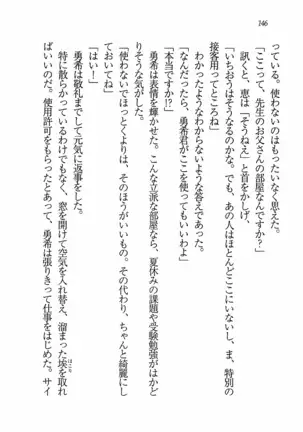 146
っている。使わないのはもったいなく思えた。
「ここって、先生のお父さんの部屋なんですか?」
訊くと、恵は「そうねえ」と首をかしげ、
「いちおうはそうなるのかな。でも、あの人はほとんどここにいないし、ま、特別の
接客用ってところね」
わかったようなわからないような答えであった。
「なんだったら、勇希君がここを使ってもいいわよ」
「本当ですか!?」
勇希は表情を輝かせた。こんな立派な部屋なら、夏休みの課題や受験勉強がはかど
りそうな気がした。
「使わないでほっとくよりは、そのほうがいいもの。その代わり、ちゃんと綺麗にし
ておいてね」
「はい!」
勇希は敬礼までして元気に返事をした。
特に散らかっているわけでもなく、窓を開けて空気を入れ替え、溜まった埃を取れ
ばいいのだ。使用許可をもらったとあって、勇希は張りきって仕事をはじめた。サイ